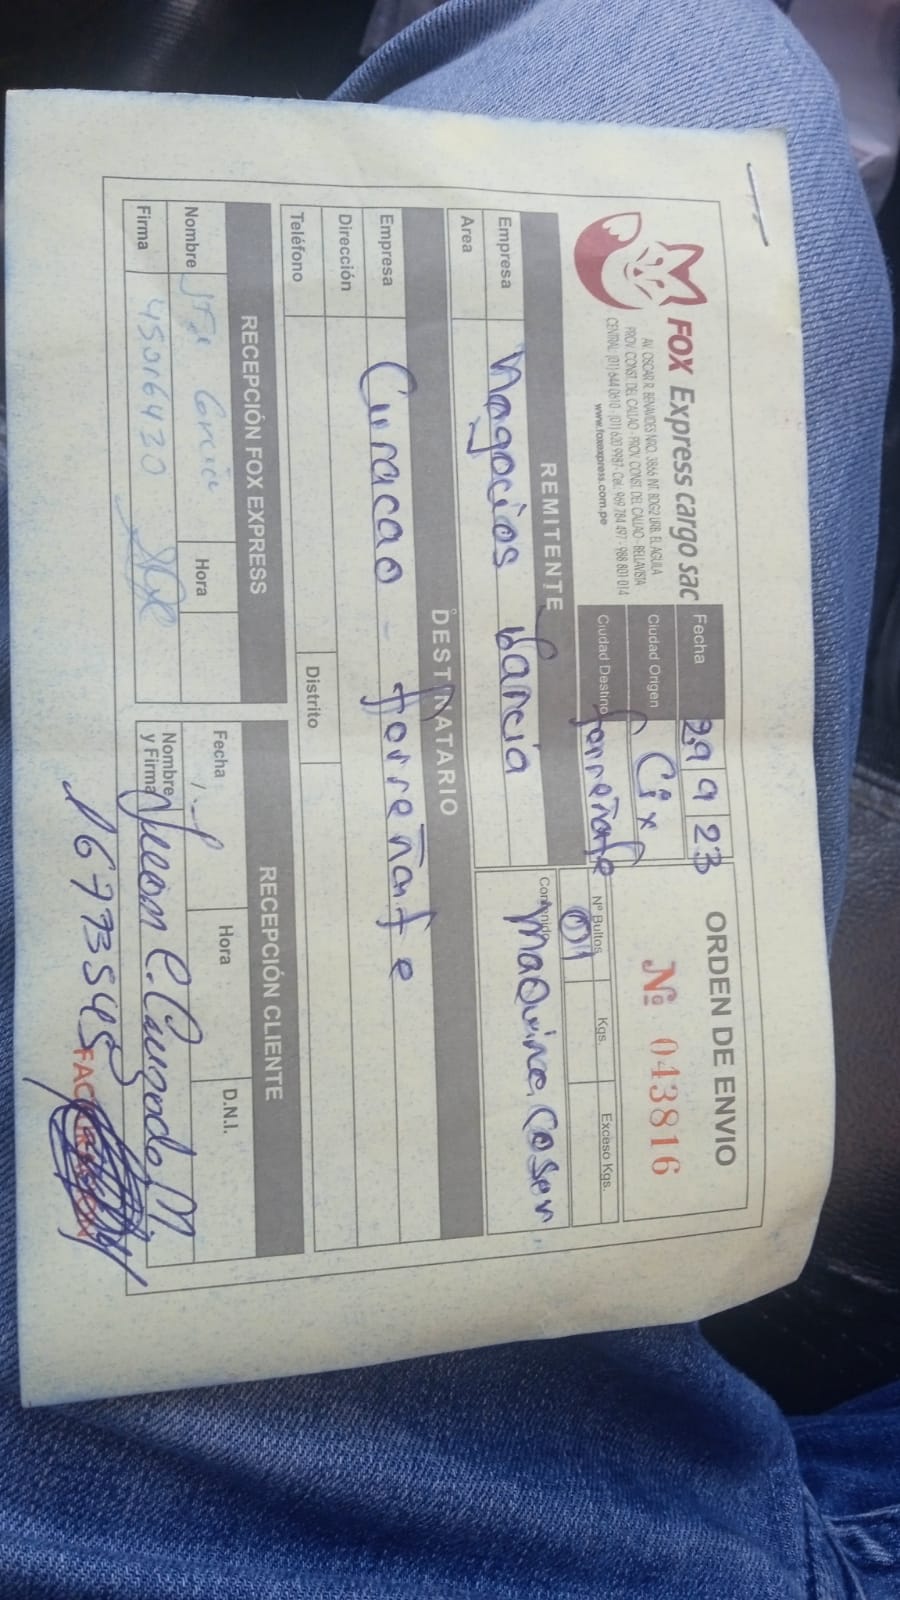 FOX Express cargo sac
AV. OSCAR R. BENAVIDES NRO. 3866 INT. BDG2 URB. EL AGUILA
PROV. CONST. DEL CALLAO - PROV. CONST. DEL CALLAO - BELLAVISTA
CENTRAL: (01) 644 0610 / (01) 620 9987 - Cel. 969 784 497 - 988 801 014
www.foxexpress.com.pe
Fecha 29 9 23
Ciudad Origen Cix
Ciudad Destino ferreñafe
ORDEN DE ENVIO
Nº 043816
Nº Bultos Kgs. Exceso Kgs.
01
REMITENTE
Empresa Nagocios Garcia
Area
Contenido Maquina Coser
DESTINATARIO
Empresa Curacao ferreñafe
Dirección
Teléfono Distrito
RECEPCIÓN FOX EXPRESS
Nombre Hora
Firma 45016420
RECEPCIÓN CLIENTE
Fecha Hora D.N.I.
Nombre y Firma
16773545